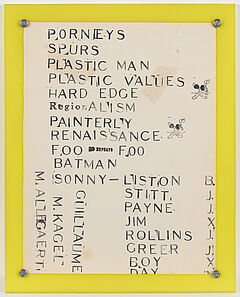 PORNEYS
SPURS
PLASTIC MAN
PLASTIC VALUES
HARD EDGE
RegionALISM
PAINTERLY
RENAISSANCE
FOO NO REPEATS FOO
BATMAN
SONNY—LISTON B.
STITT, J.
PAYNE, J.
JIM X
ROLLINS J.
GREER J.
BOY X
DAY
M. ALLGAERT
M. KAGEL
GUILLAUME